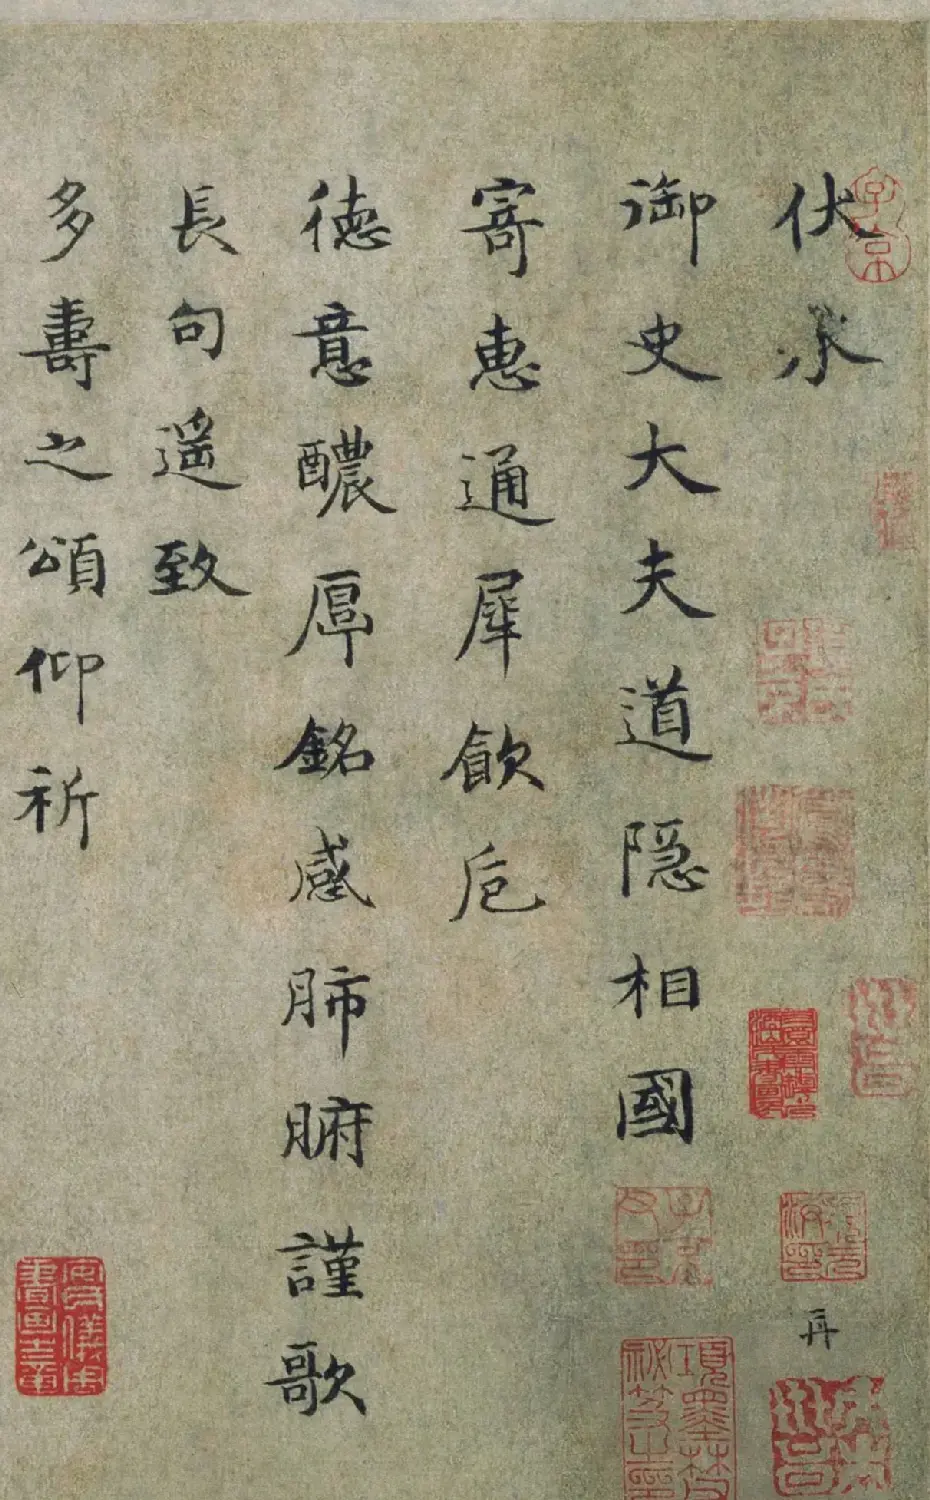 伏承
御史大夫道隐相國
寄惠通犀飲卮
德意醲厚銘感肺腑謹歌
長句遥致
多壽之頌仰祈
再